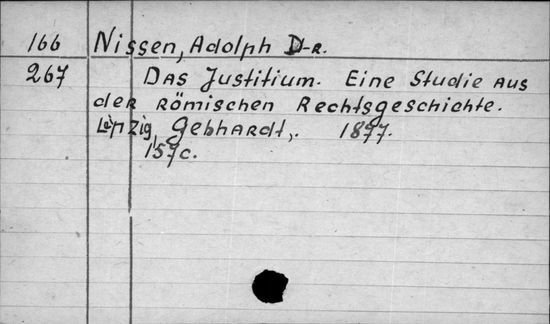 166 Nissen, Adolph D-r.
267 Das Justitium. Eine Studie aus
der römischen Rechtsgeschichte.
Leipzig, Gebhardt,. 1877.
157c.